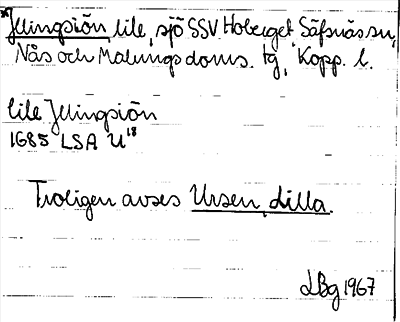 *Jllingsiön, lile, sjö SSV Hoberget Säfsnäs sn,
Nås och Malungs doms. tg, Kopp. l.
lile Jllingsiön
1685 LSA U¹⁸
Troligen avses Ursen, Lilla.
LBg 1967